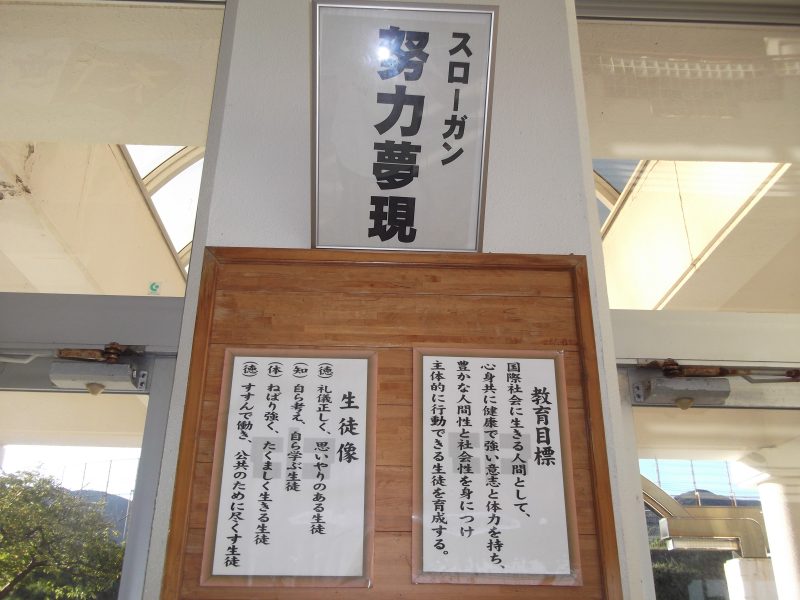 スローガン
努力夢現
教育目標
国際社会に生きる人間として、
心身共に健康で強い意志と体力を持ち、
豊かな人間性と社会性を身につけ
主体的に行動できる生徒を育成する。
生徒像
（徳）礼儀正しく、思いやりのある生徒
（知）自ら考え、自ら学ぶ生徒
（体）ねばり強く、たくましく生きる生徒
（徳）すすんで働き、公共のために尽くす生徒